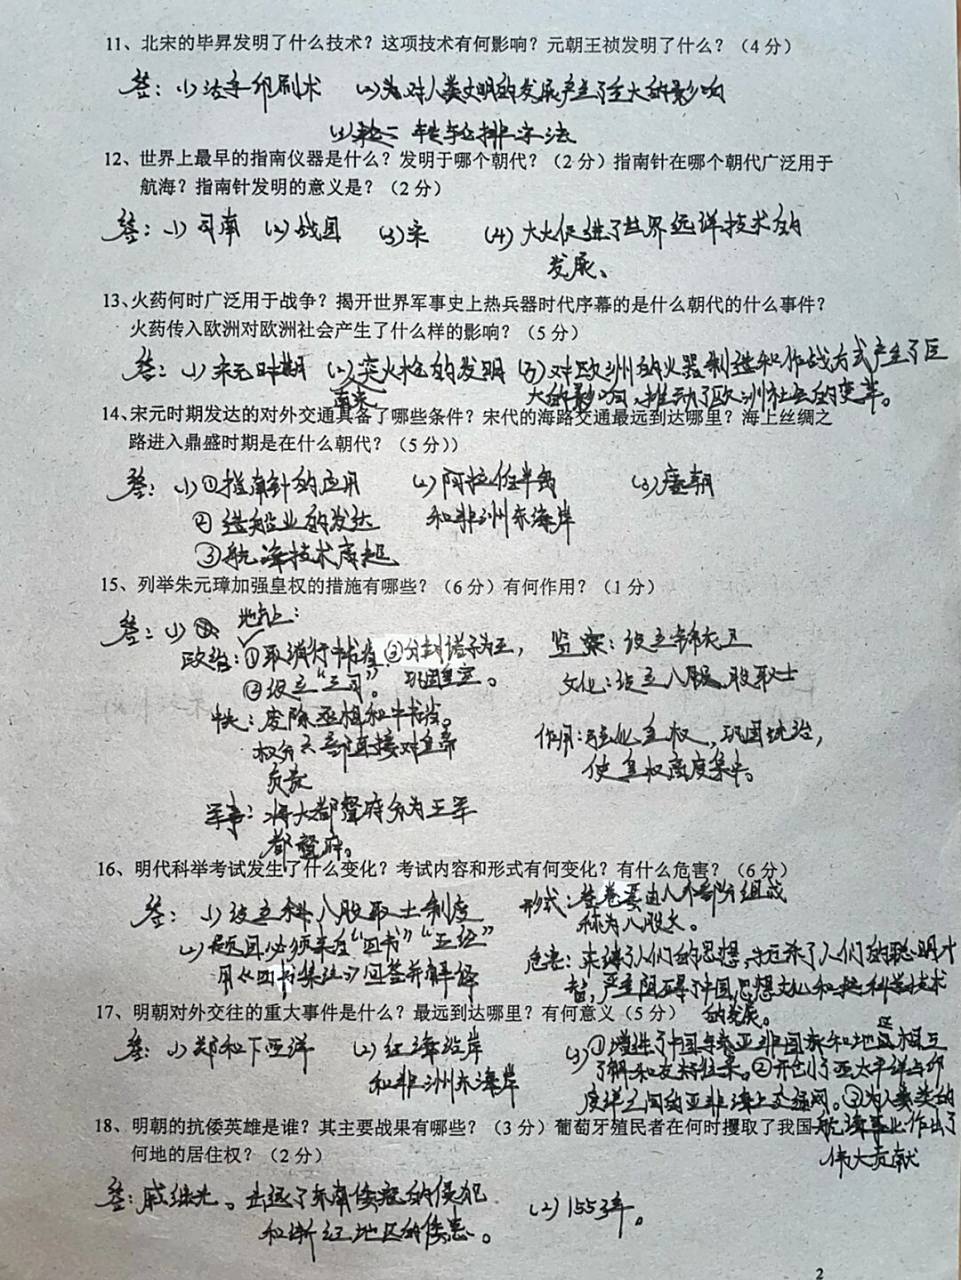 11、北宋的毕昇发明了什么技术？这项技术有何影响？元朝王祯发明了什么？（4分）
答：(1)活字印刷术 (2)为对人类文明的发展产生了重大的影响
转轮排字法
12、世界上最早的指南仪器是什么？发明于哪个朝代？（2分）指南针在哪个朝代广泛用于
航海？指南针发明的意义是？（2分）
答：(1)司南 (2)战国 (3)宋 (4)大大促进了世界远洋技术的
发展、
13、火药何时广泛用于战争？揭开世界军事史上热兵器时代序幕的是什么朝代的什么事件？
火药传入欧洲对欧洲社会产生了什么样的影响？（5分）
答：(1)宋元时期 (2)突火枪的发明 (3)对欧洲的火器制造和作战方式产生了巨
南宋 大的影响，推动了欧洲社会的变革。
14、宋元时期发达的对外交通具备了哪些条件？宋代的海路交通最远到达哪里？海上丝绸之
路进入鼎盛时期是在什么朝代？（5分））
答：(1)①指南针的应用 (2)阿拉伯半岛 (3)唐朝
②造船业的发达 和非洲东海岸
③航海技术
15、列举朱元璋加强皇权的措施有哪些？（6分）有何作用？（1分）
答：(1) 地方：
政治：①取消行中书省 ③分封诸子为王， 监察：设立锦衣卫
②设立“三司”。 巩固皇室。 文化：设立八股取士
中央：废除丞相和中书省。
权分六部直接对皇帝 作用：强化皇权，巩固统治，
负责 使皇权高度集中。
军事：将大都督府分为五军
都督府。
16、明代科举考试发生了什么变化？考试内容和形式有何变化？有什么危害？（6分）
答：(1)设立科八股取士制度 形式：答卷要由八个部分组成
称为八股文。
(2)题目必须来自“四书”“五经”
用《四书集注》回答并解释
危害：束缚了人们的思想，扼杀了人们的聪明才
智，严重阻碍了中国思想文化和科学技术
的发展。
17、明朝对外交往的重大事件是什么？最远到达哪里？有何意义（5分）
答：(1)郑和下西洋 (2)红海沿岸
和非洲东海岸
(3)①增进了中国与亚非国家和地区相互
了解和友好往来。②开创了西太平洋与印
度洋之间的亚非海上交通网。③为人类的
航海事业作出了
伟大贡献
18、明朝的抗倭英雄是谁？其主要战果有哪些？（3分）葡萄牙殖民者在何时攫取了我国
何地的居住权？（2分）
答：戚继光。击退了东南倭寇的侵犯
和浙江地区的倭患。 (2)1553年。
2